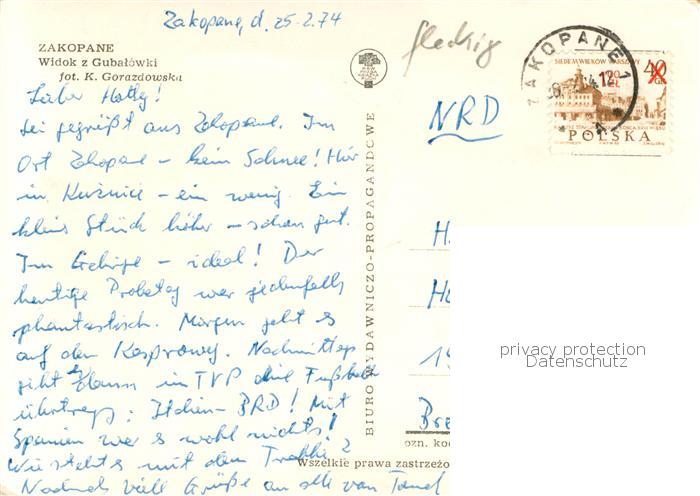 Zakopane, d. 25-2.74
fleckig
ZAKOPANE
Widok z Gubałówki
fot. K. Gorazdowska
Lieber Hotty!
Sei gegrüßt aus Zakopane. Im
Ort Zakopane – kein Schnee! Hier
in Kuźnice – ein wenig. Ein
klein Stück höher – schon gut.
Im Gebirge – ideal! Der
heutige Probetag war jedenfalls
phantastisch. Morgen geht es
auf den Kasprowy. Nachmittags
gibt es dann in TVP die Fußball
übertrag: Italien – BRD! Mit
Spanien war es wohl nichts!
Wie steht's mit dem Trabbi?
Nochmals viele Grüße an alle von
BIURO WYDAWNICZO-PROPAGANDOWE
ZAKOPANE 1
SIEDEM WIEKÓW WARSZAWY
40
POLSKA
NRD
H
Ho
19
Bre
ozn. kod
Wszelkie prawa zastrzeżo
privacy protection
Datenschutz